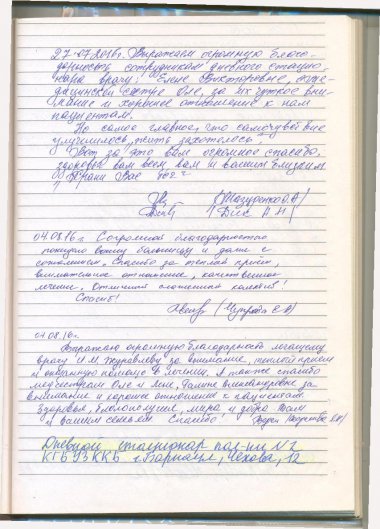 27.07.2016г. Выражаем огромную благо-
дарность сотрудникам дневного стацио-
нара врачу: Елене Викторовне, ме-
дицинской сестре Оле, за их чуткое вни-
мание и хорошее отношение к нам
пациентам.
Но самое главное, что самочувствие
улучшилось, жить захотелось!
Вот за это Вам огромное спасибо.
здоровья вам всем вам и вашим близким.
Храни Вас Бог!
04.08.16г. С огромной благодарностью
покидаю вашу больницу и даже с
сожалением. Спасибо за теплый прием,
внимательное отношение, качественное
лечение. Отличный сплоченный коллектив!
Спасиб!
04.08.16г.
Выражаю огромную благодарность лечащему
врачу И.М. Журавлеву за внимание, теплый прием
и оказанную помощь в лечении. А также спасибо
медсестрам Оле и Лене, Галине Александровне за
внимание и хорошее отношение к пациентам.
Здоровья, благополучия, мира и добра Вам
и вашим семьям. Спасибо!
Дневной стационар пол-ки №1
КГБУЗ ККБ г. Барнаул, Чехова, 12